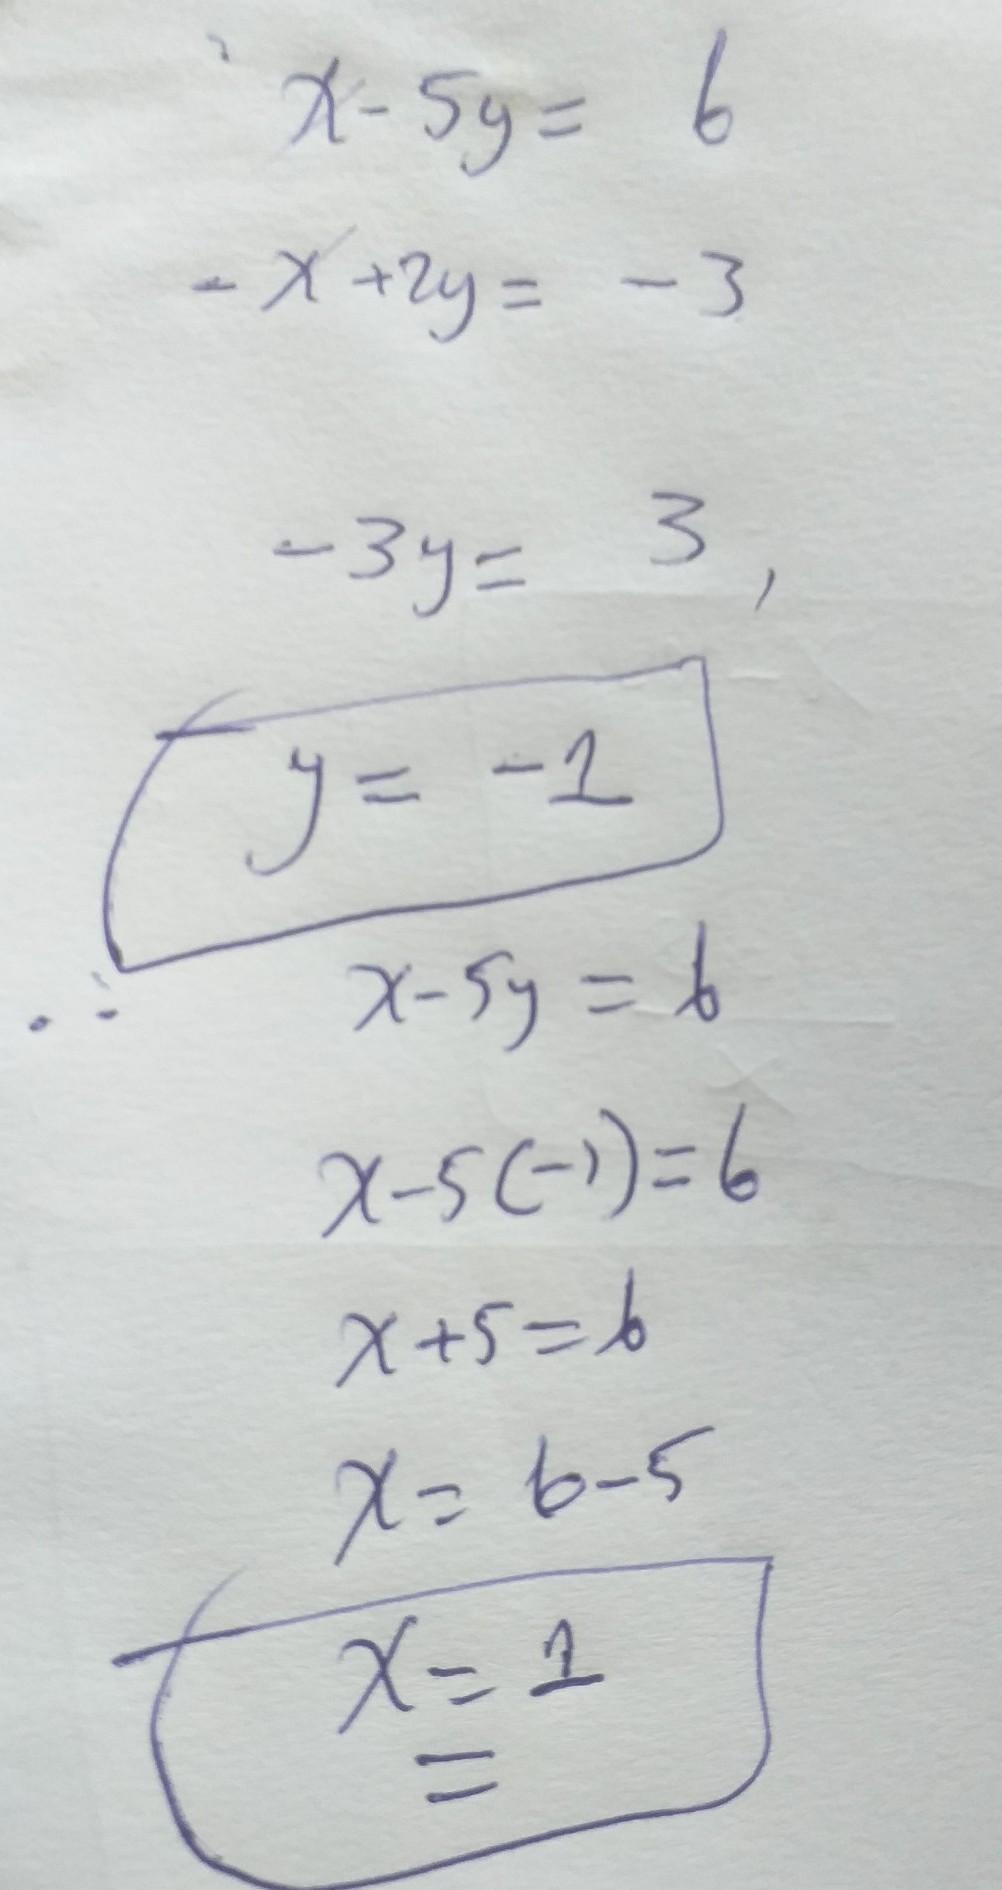 x - 5y = 6
- x + 2y = - 3
- 3y = 3,
y = - 1
∴ x - 5y = 6
x - 5(-1) = 6
x + 5 = 6
x = 6 - 5
x = 1
=